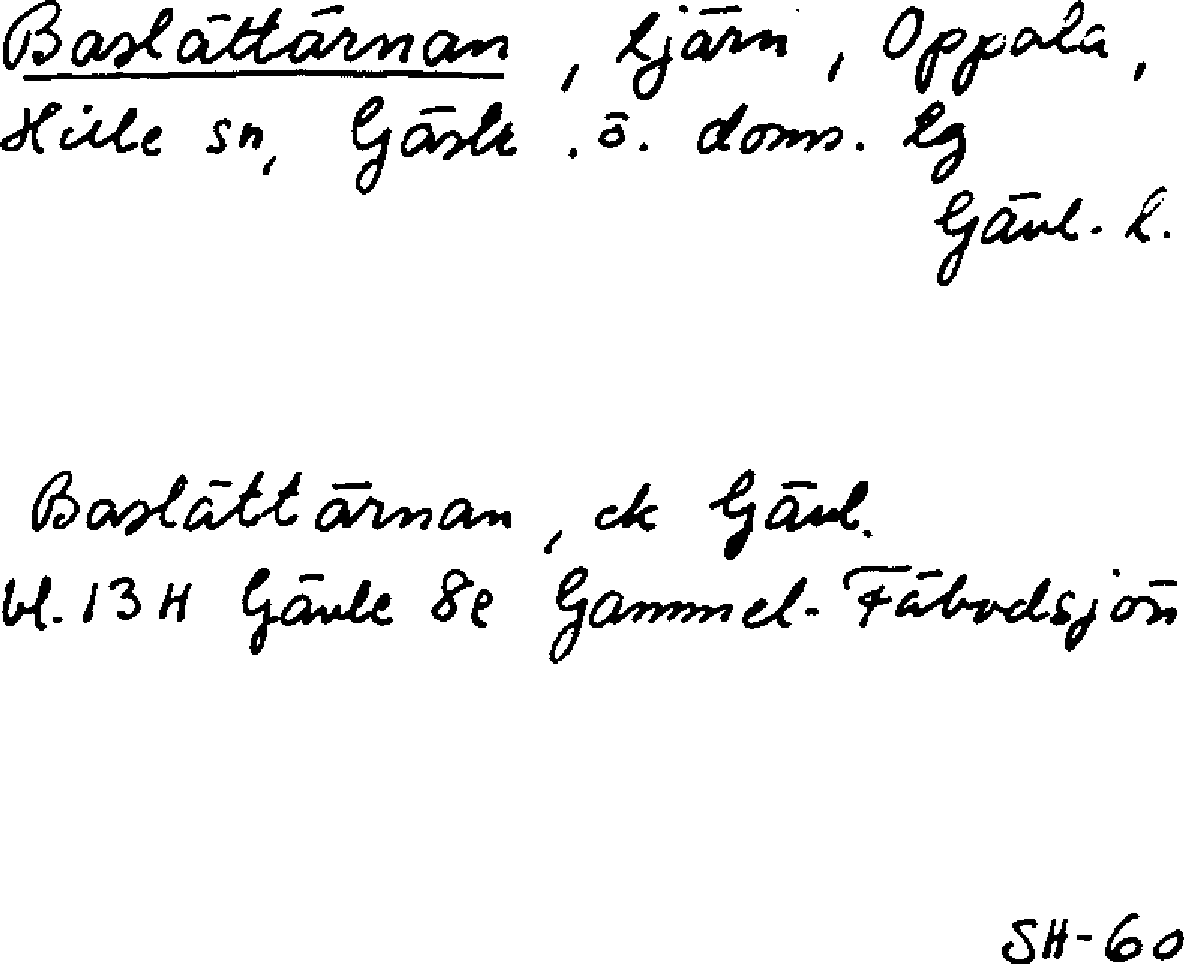 Baslåttärnan, tjärn, Oppala,
Hille sn, Gästr. ö. doms. lg
Gävl. l.
Baslåttärnan, ek Gävl.
bl. 13H Gävle 8e Gammel-Fäbodsjön
SH-60